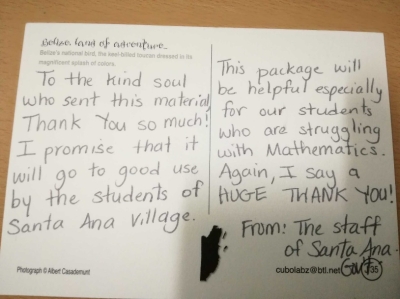 Belize, land of adventure
Belize's national bird, the keel-billed toucan dressed in its
magnificent splash of colors.
To the kind soul
who sent this material,
Thank You so much!
I promise that it
will go to good use
by the students of
Santa Ana Village.
Photograph © Albert Casademunt
This package will
be helpful especially
for our students
who are struggling
with Mathematics.
Again, I say a
HUGE THANK YOU!
From: The staff
of Santa Ana
cubolabz@btl.net
35